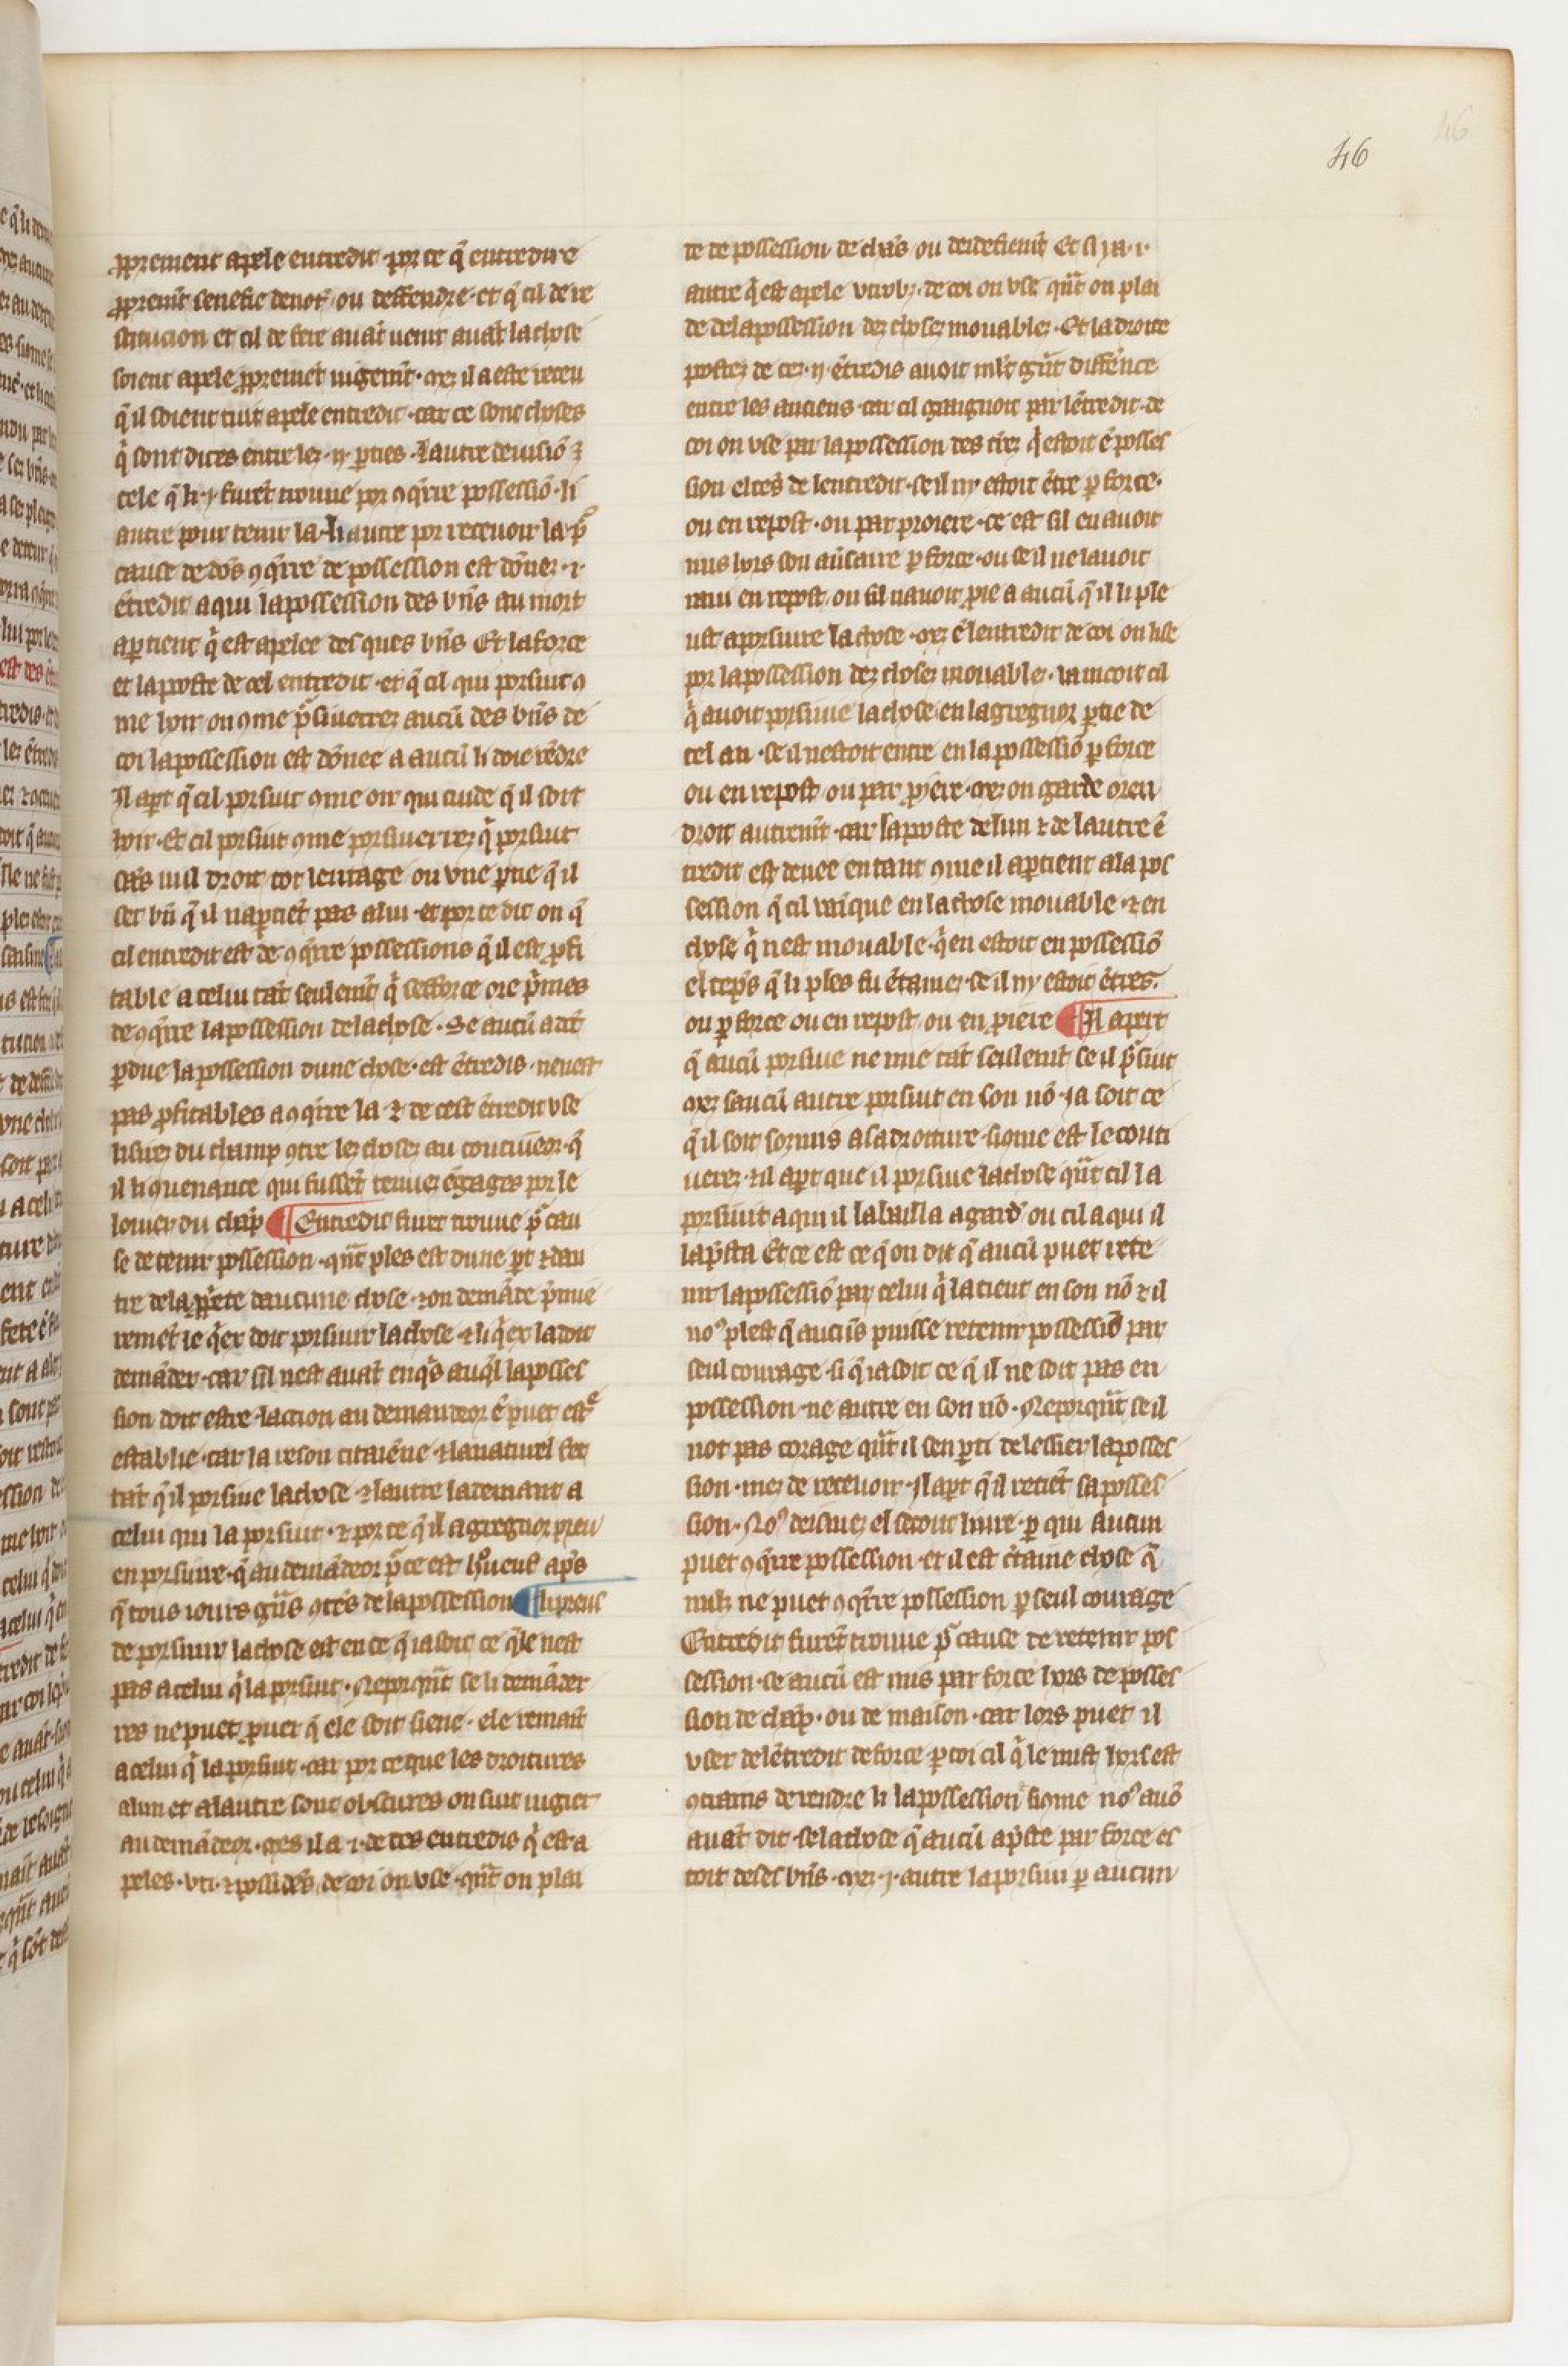 46
ꝓprement apele entredit por ce q̃ entredire
ꝓprem̃t senefie denoť ou deffendre et q̃ cil de re
stitucion et cil de fere auãt uenir auãt la chose
soient apele ꝓpremẽt iugem̃t mez il a este receu
q̃ il soient tuit apele entredit car ce sont choses
q̃ sont dites entre lez ij ꝑties Lautre deuisiõ ÷
cele q̃ li j furẽt trouue por ꝯq̃rre possessiõ li
autre pour tenir la li autre por receuoir la pͬ
cause de dõs ꝯq̃rre de possession est dõnez i
ẽtredit a qui la possession des bñs au mort
aꝑtient q̃ est apelee des ques bñs Et la force
et la poste de cel entredit est q̃ cil qui porsiut ꝯ
me hoir ou ꝯme pͬsiuerrez aucũ des bñs de
coi la possession est dõnee a aucũ li doie rẽdre
Il apt q̃ cil porsiut ꝯme oir qui cuide q̃ il soit
hoir Et cil porsiut ꝯme porsiuerrez q̃ porsiut
sãs nul droit tot leritage ou vne ꝑtie q̃ il
set bñ q̃ il naꝑtiẽt pas a lui et por ce dit on q̃
cil entredit est de ꝯq̃rre possessions q̃ il est ꝓfi
table a celui tãt seulem̃t q̃ sefforce ore p̃mes
de ꝯq̃rre la possession de la chose Se aucũ a dõt
ꝑdue la possession dune chose cest ẽtredis ne uest
pas ꝓfitables a ꝯq̃rre la ⁊ de cest ẽtredit vse
li sires du champ ꝯtre lez choses au coutiueor q̃
il li quenance qui fussẽt tenuez ẽ gages por le
louier du chãp ¶ Entredit furẽt trouue pͬ cau
se de tenir possession qũt ples est dune ꝑt ⁊ dau
tre de la ꝓp̃ete daucune chose ⁊ on demãde p̃mie
remẽt le q̃ex doit porsiuir la chose ⁊ li q̃ex la doit
demãder car sil nest auãt enq̃s auq̃l la posses
sion doit estre laction au demandeor ẽ puet estͤ
establie car la reson citaiẽne ⁊ la naturel fet
tãt q̃ il porsiue la chose ⁊ lautre la demant a
celui qui la porsiut ⁊ por ce q̃ il a gregnor preu
en porsiure q̃ au demãdeor pͬ ce est souent apͬs
q̃ tous iours grãs ꝯtẽs de la possession ¶ li preus
de porsiuir la chose est en ce q̃ ia soit ce q̃le nest
pas a celui q̃ la porsiut Neporqũt se li demãder
res ne puet ꝓuer q̃ ele soit siene ele remaĩt
a celui q̃ la porsiut car por ce que les droitures
a lun et a lautre sont obscures on siut iugier
au demãdeor mes il a i de ces entredis q̃ est a
peles vti ⁊ possidẽs de coi on vse qũt on plai
de de possession de chãs ou dez defiem̃t Et si ja i
autre q̃ est apele vtrobz de coi on vse qũt on plai
de de la possession dez chosez mouablez Et la droite
postez de cez ij ẽtredis auoit ml't grãt differ̃nce
entre les anciens car cil graignoit par lẽtredit de
coi on vse par la possession des t̃rez q̃ estoit ẽ posses
sion el tẽs de lentredit se il ny estoit ẽtre ꝑ force
ou en repost ou par proiere ce est sil en auoit
mis hors son auͣsaire ꝑ force ou se il ne lauoit
rauu en repost ou sil nauoit ꝓie a aucũ q̃ il li ple
ust a porsiuire la chose mez ẽ lentredit de coi on lise
por la possession dez chosez mouablez vaincoit cil
q̃ auoit porsiuue la chose en la gregnor ꝑtie de
cel an se il nestoit entre en la possessiõ ꝑ force
ou en repost ou par ꝓiere mez on garde oren
droit autrem̃t car la poste de lun ⁊ de lautre ẽ
tredit est donee en tant ꝯme il aꝑtient a la pos
session q̃ cil vaĩque en la chose mouable ⁊ en
chose q̃ nest mouable q̃ en estoit en possessiõ
el tẽps q̃ li ples fu ẽtamez se il ny estoit ẽtres
ou ꝑ force ou en repost ou en p̃iere ¶ Il apert
q̃ aucũ porsiue ne mie tãt seulem̃t se il pͬsiut
mez saucũ autre porsiut en son nõ ia soit ce
q̃ il soit sozmis a sa droiture siome est le couti
uerez ⁊ il apt que il porsiue la chose qũt cil la
porsiuit a qui il la bailla a gard' ou cil a qui il
la p̃sta Et ce est ce q̃ on dit q̃ aucũ puet rete
nir la possessiõ par celui q̃ la tient en son nõ ⁊ il
noꝰ plest q̃ aucũs puisse retenir possessiõ par
seul courage si q̃ ia soit ce q̃ il ne soit pas en
possession ne autre en son nõ Neporqũt se il
not pas corage qũt il sen ꝑti de lessier la posses
sion mez de receuoir Il apt q̃ il retiẽt sa posses
sion Noꝰ deismez el secont liure ꝑ qui aucun
puet ꝯq̃rre possession et il est c̃taine chose q̃
nulz ne puet ꝯq̃rre possession ꝑ seul courage
Entredit furẽt trouue pͬ cause de retenir pos
session se aucũ est mis par force hors de posses
sion de chãp ou de maison car lors puet il
vser de lẽtredit de force ꝑ coi cil q̃ le mist hors est
ꝯtrains de rendre li la possession siome noꝰ auõ
auãt dit se la chose q̃ aucũ ap̃ste par force es
toit de ses bñs mez j autre la porsiui ꝑ aucun